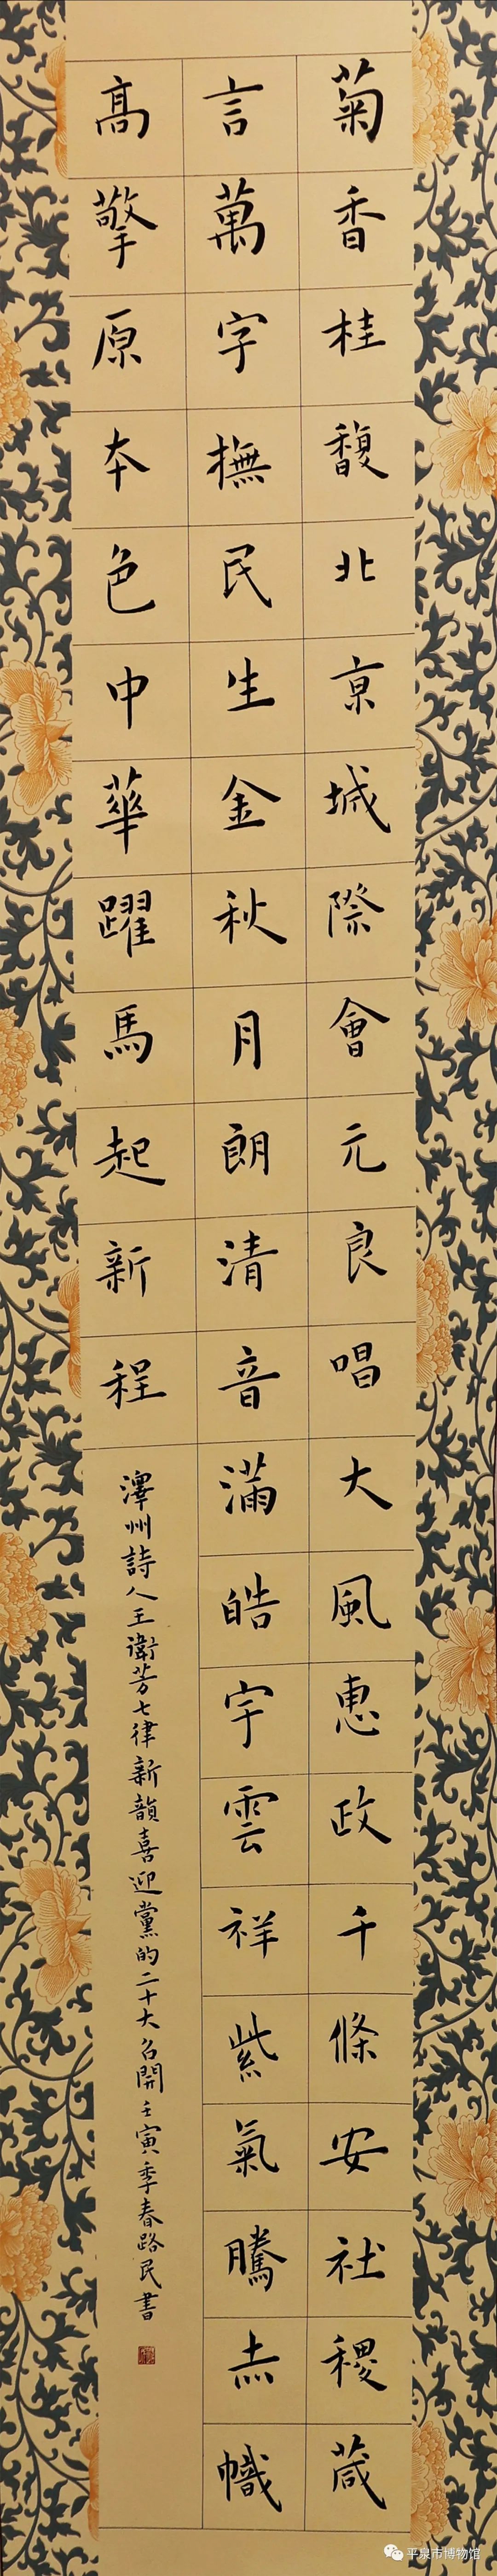 菊香桂馥北京城際會元良唱大風惠政千條安社稷箴
言萬字撫民生金秋月朗清音滿皓宇雲祥紫氣騰赤幟
高擎原本色中華躍馬起新程
澤州詩人王衛芳七律新韻喜迎黨的二十大召開壬寅季春路民書
平泉市博物馆